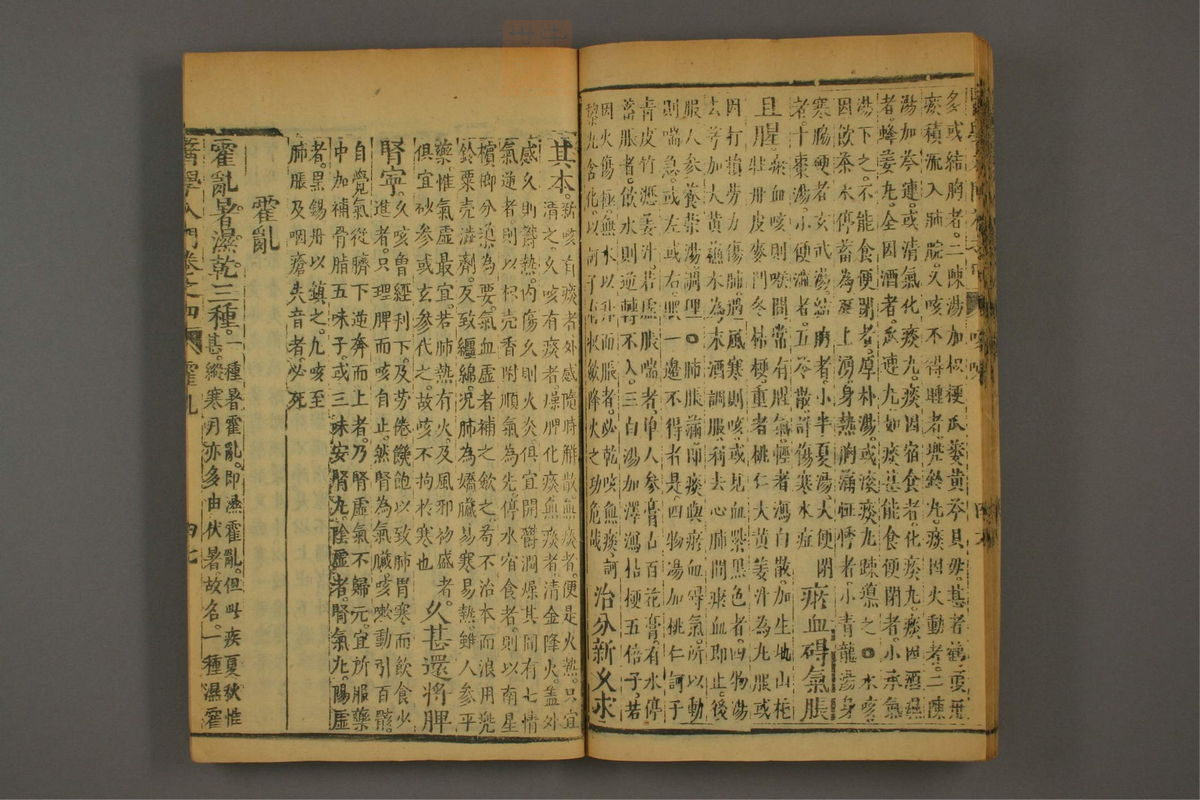 多或結胸者二陳湯加枳梗瓜蔞黃芩貝母甚者鶴頂丹
瘀積流入肺脘久咳不得睡者兜鈴丸痰因火動者二陳
湯加芩連或清氣化痰丸痰因宿食者化痰丸痰因酒濕
者蜂姜丸全因酒者瓜連丸如痰甚能食便閉者小承氣
湯下之不能食便閉者厚朴湯或滚痰丸踈導之○水咳
因飲茶水停畜為涎上湧身熱胸滿怔忡者小青龍湯身
寒腸硬者玄武湯結胸者小半夏湯大便閉
者十棗湯小便澁者五苓散許傷寒水症
瘀血碍氣脹
且腥瘀血咳則喉間常有腥氣輕者瀉白散加生地山梔
牡丹皮麥門冬桔梗重者桃仁大黃姜汁為丸服或
因打損勞力傷肺遇風寒則咳或見血紫黑色者四物湯
去芎加大黃蘇木為末酒調服利去心肺間瘀血即止後
服人參養榮湯調理○肺脹滿即痰與瘀血碍氣所以動
則喘急或左或右眠一邊不得者是四物湯加桃仁訶子
青皮竹瀝姜汁若虛脹喘者单人參膏古百花膏有水停
蓄脹者飲水則逆轉不入三白湯加澤瀉桔梗五倍子若
因火傷極無水以升而脹者必乾咳無痰訶
黎丸含化以訶子有收歛降火之功危哉
治分新久求
其本新咳有痰者外感隨時解散無痰者便是火熱只宜
清之久咳有痰者燥脾化痰無痰者清金降火盖外
感久則欝熱內傷久則火炎俱宜開欝潤燥其間有七情
氣逆者則以枳壳香附順氣為先停水宿食者則以南星
檳榔分導為要氣血虛者補之歛之苟不治本而浪用兜
鈴粟壳澁劑反致纏綿况肺為嬌臟易寒易熱雖人參平
藥惟氣虛最宜若肺熱有火及風邪初盛者
俱宜砂參或玄參代之故咳不拘於寒也
久甚還將脾
腎寧久咳曾經利下及劳倦饑飽以致肺胃寒而飲食少
進者只理脾而咳自止然腎為氣臟咳嗽動引百骸
自覺氣從臍下逆奔而上者乃腎虛氣不歸元宜所服藥
中加補骨脂五味子或三味安腎丸陰虛者腎氣丸陽虛
者黑錫丹以鎮之凡咳至
肺脹及咽瘡失音者必死
霍亂
霍亂暑濕乾三種一種暑霍亂即濕霍亂但此疾夏秋惟
甚縱寒月亦多由伏暑故名一種濕霍
醫學入門卷之四 霍亂 四七